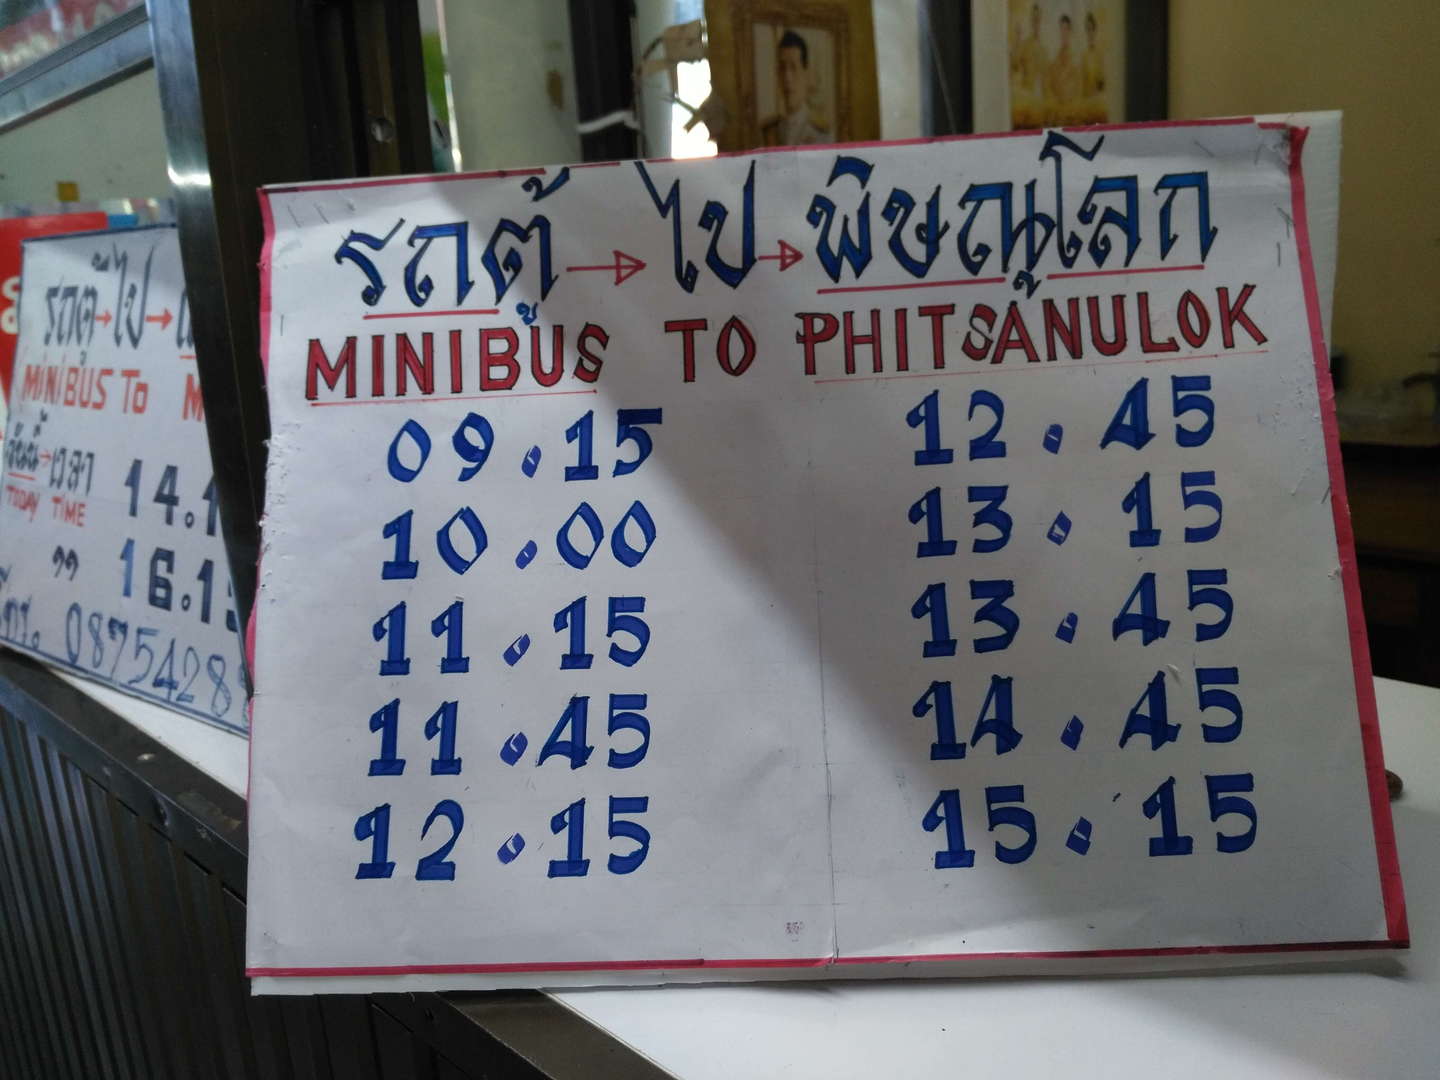 รถตู้ → ไป → พิษณุโลก
MINIBUS TO PHITSANULOK
09.15 12.45
10.00 13.15
11.15 13.45
11.45 14.45
12.15 15.15
รถตู้→ไป→
MINIBUS TO M
วันนี้→เวลา 14.1
TODAY TIME
" 16.15
โทร. 0875428